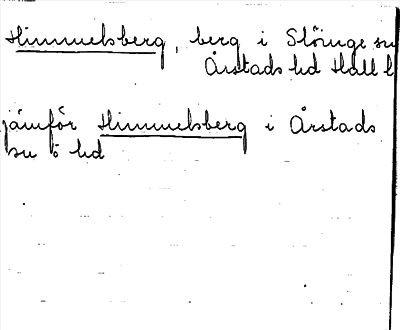 Himmelsberg, berg i Slöinge sn
Årstads hd Hall l
jämför Himmelsberg i Årstads
sn o hd